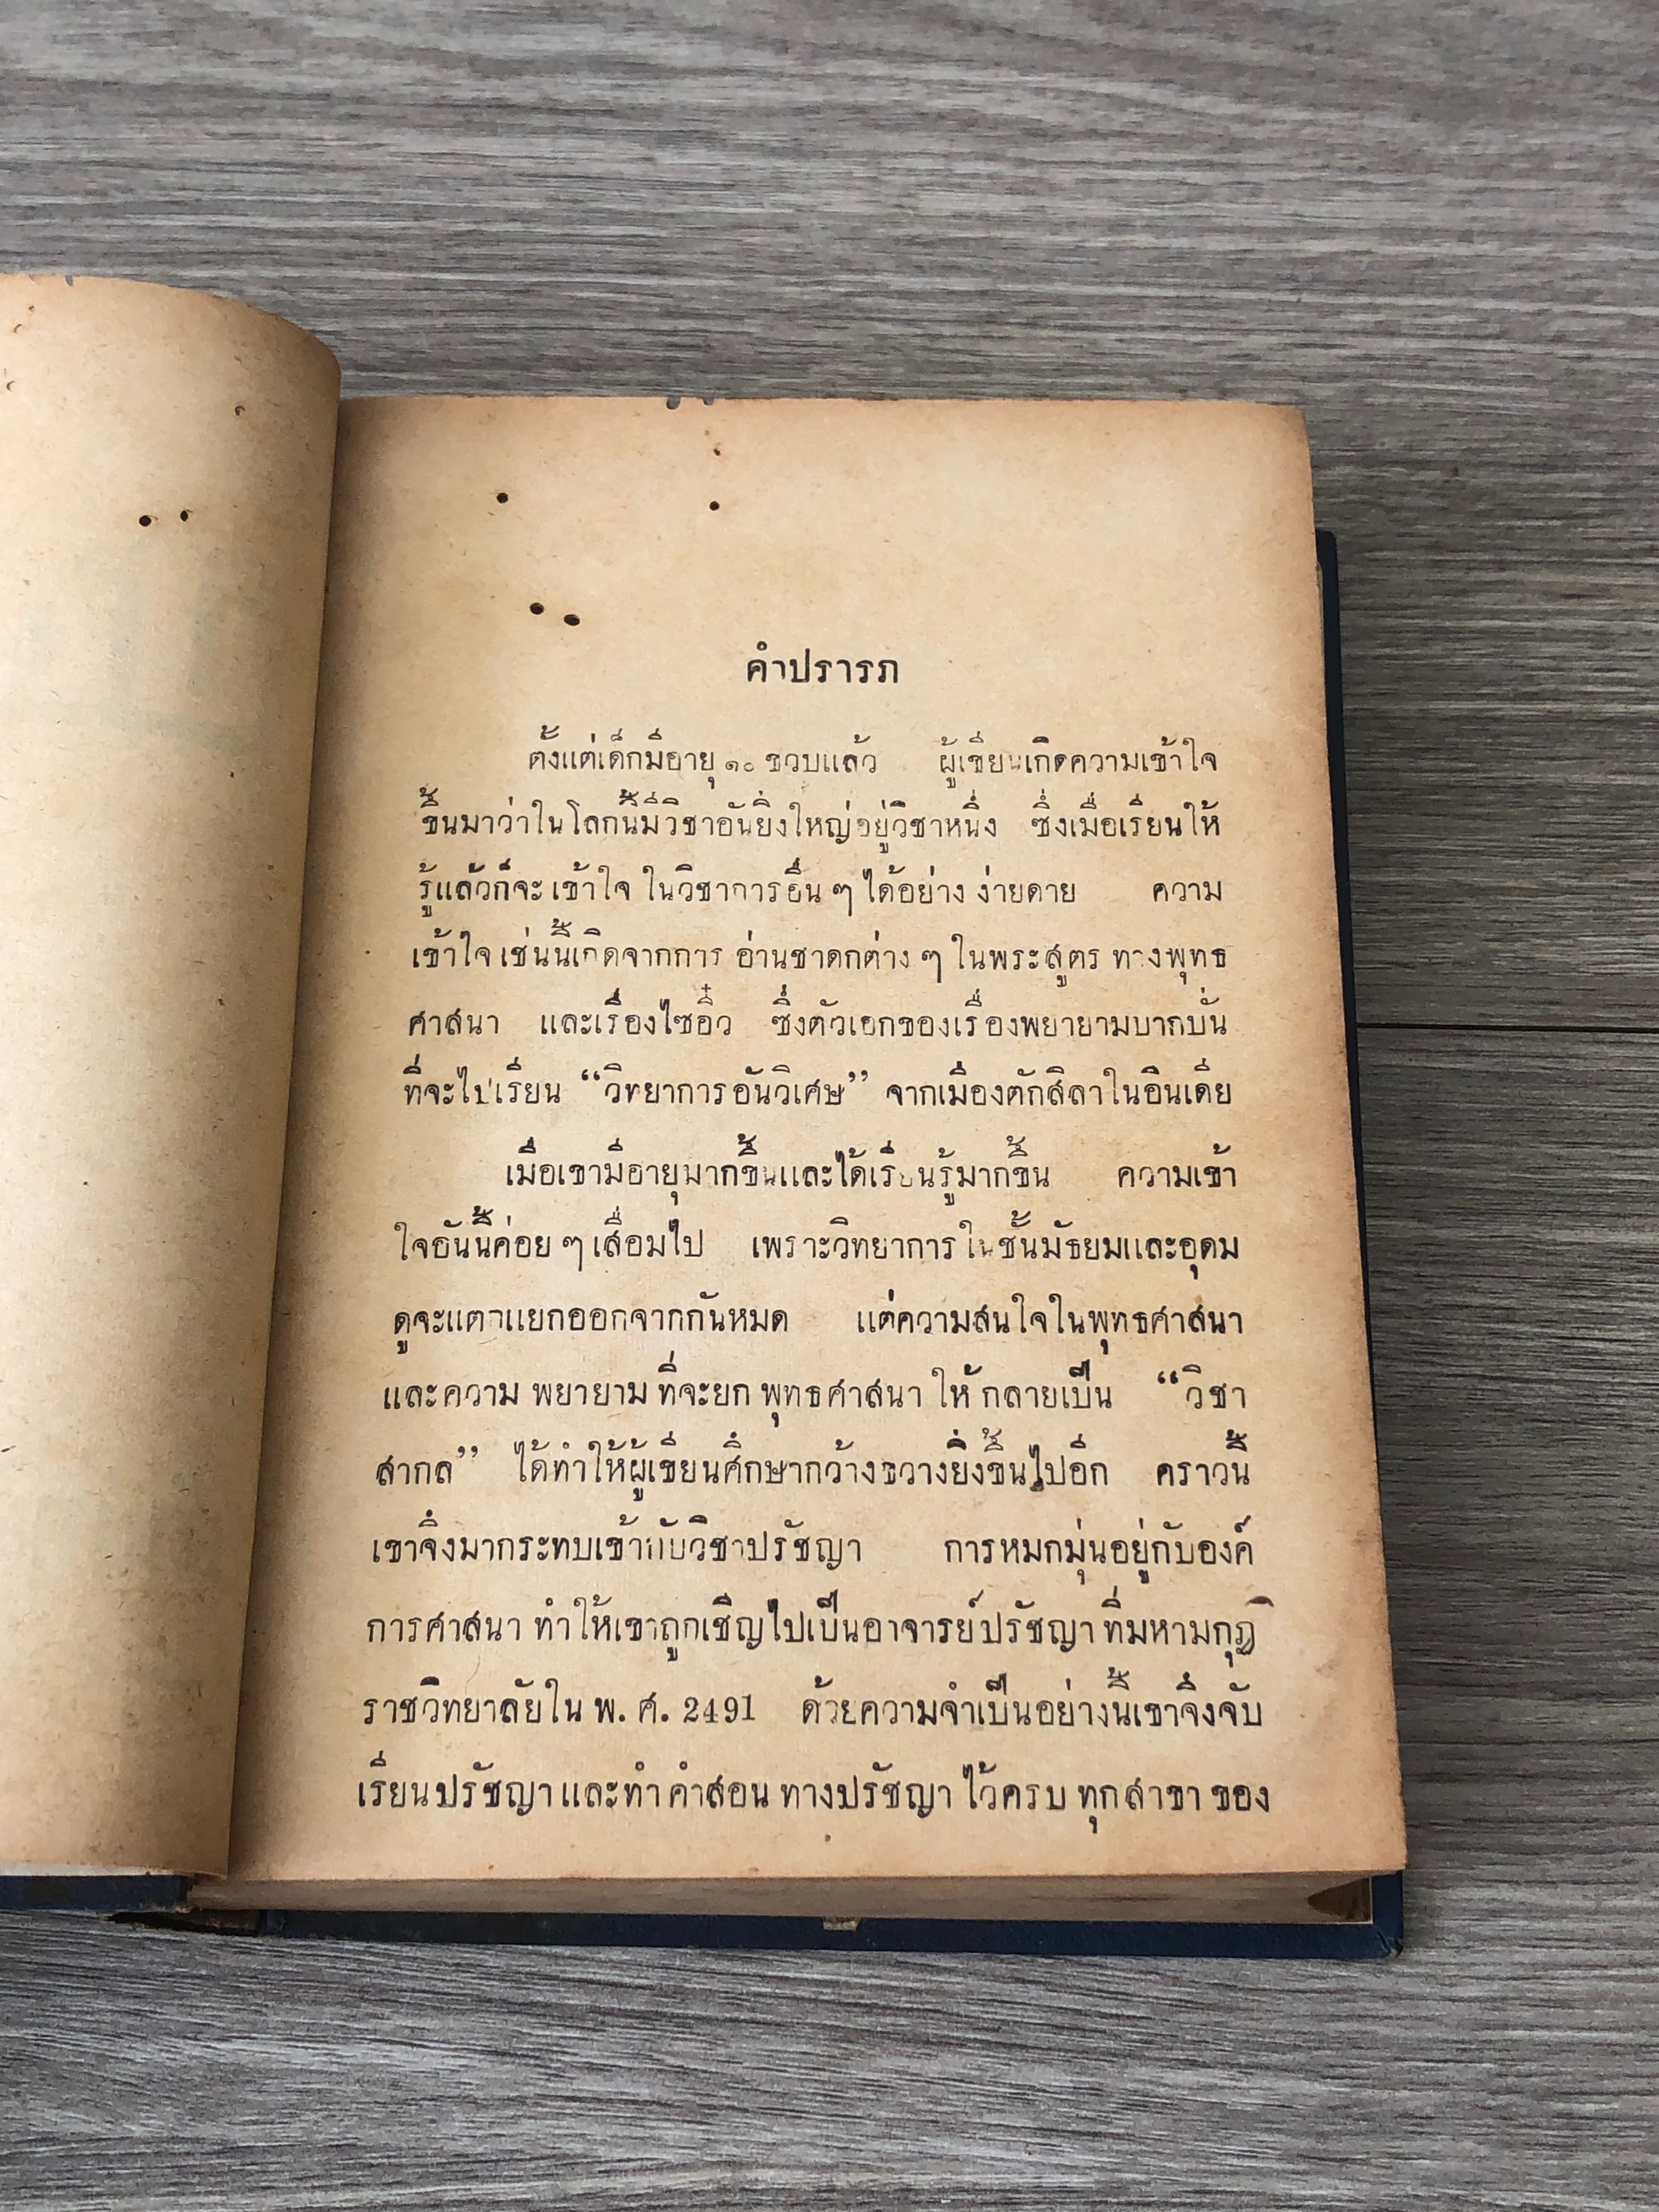 คำปรารภ
ตั้งแต่เด็กมีอายุ ๑๐ ขวบแล้ว ผู้เขียนเกิดความเข้าใจ
ขึ้นมาว่าในโลกนี้มีวิชาอันยิ่งใหญ่อยู่วิชาหนึ่ง ซึ่งเมื่อเรียนให้
รู้แล้วก็จะ เข้าใจ ในวิชาการอื่น ๆ ได้อย่าง ง่ายดาย ความ
เข้าใจ เช่นนี้เกิดจากการ อ่านชาดกต่าง ๆ ในพระสูตร ทางพุทธ
ศาสนา และเรื่องไซอิ๋ว ซึ่งตัวเอกของเรื่องพยายามบากบั่น
ที่จะไปเรียน “วิทยาการอันวิเศษ” จากเมืองตักสิลาในอินเดีย
เมื่อเขามีอายุมากขึ้นและได้เรียนรู้มากขึ้น ความเข้า
ใจอันนี้ค่อย ๆ เสื่อมไป เพราะวิทยาการในชั้นมัธยมและอุดม
ดูจะแตกแยกออกจากกันหมด แต่ความสนใจในพุทธศาสนา
และความ พยายาม ที่จะยก พุทธศาสนา ให้ กลายเป็น “วิชา
สากล” ได้ทำให้ผู้เขียนศึกษากว้างขวางยิ่งขึ้นไปอีก คราวนี้
เขาจึงมากระทบเข้ากับวิชาปรัชญา การหมกมุ่นอยู่กับองค์
การศาสนา ทำให้เขาถูกเชิญไปเป็นอาจารย์ปรัชญา ที่มหามกุฏ
ราชวิทยาลัยใน พ. ศ. 2491 ด้วยความจำเป็นอย่างนี้เขาจึงจับ
เรียนปรัชญา และทำ คำสอน ทางปรัชญา ไว้ครบ ทุก สาขา ของ